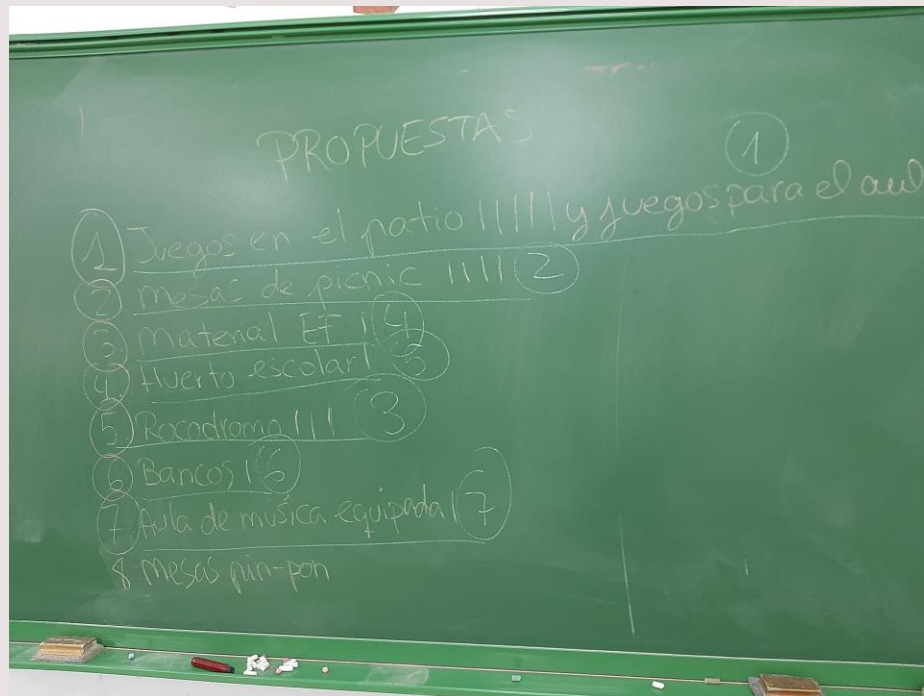 PROPUESTAS
1
1 Juegos en el patio |||||| y juegos para el aul
2 Mesas de picnic ||||| 2
3 Material EF | 4
4 Huerto escolar |
5 Rocodromo ||| 3
6 Bancos | 6
7 Aula de música equipada | 7
8-Mesas pin-pon